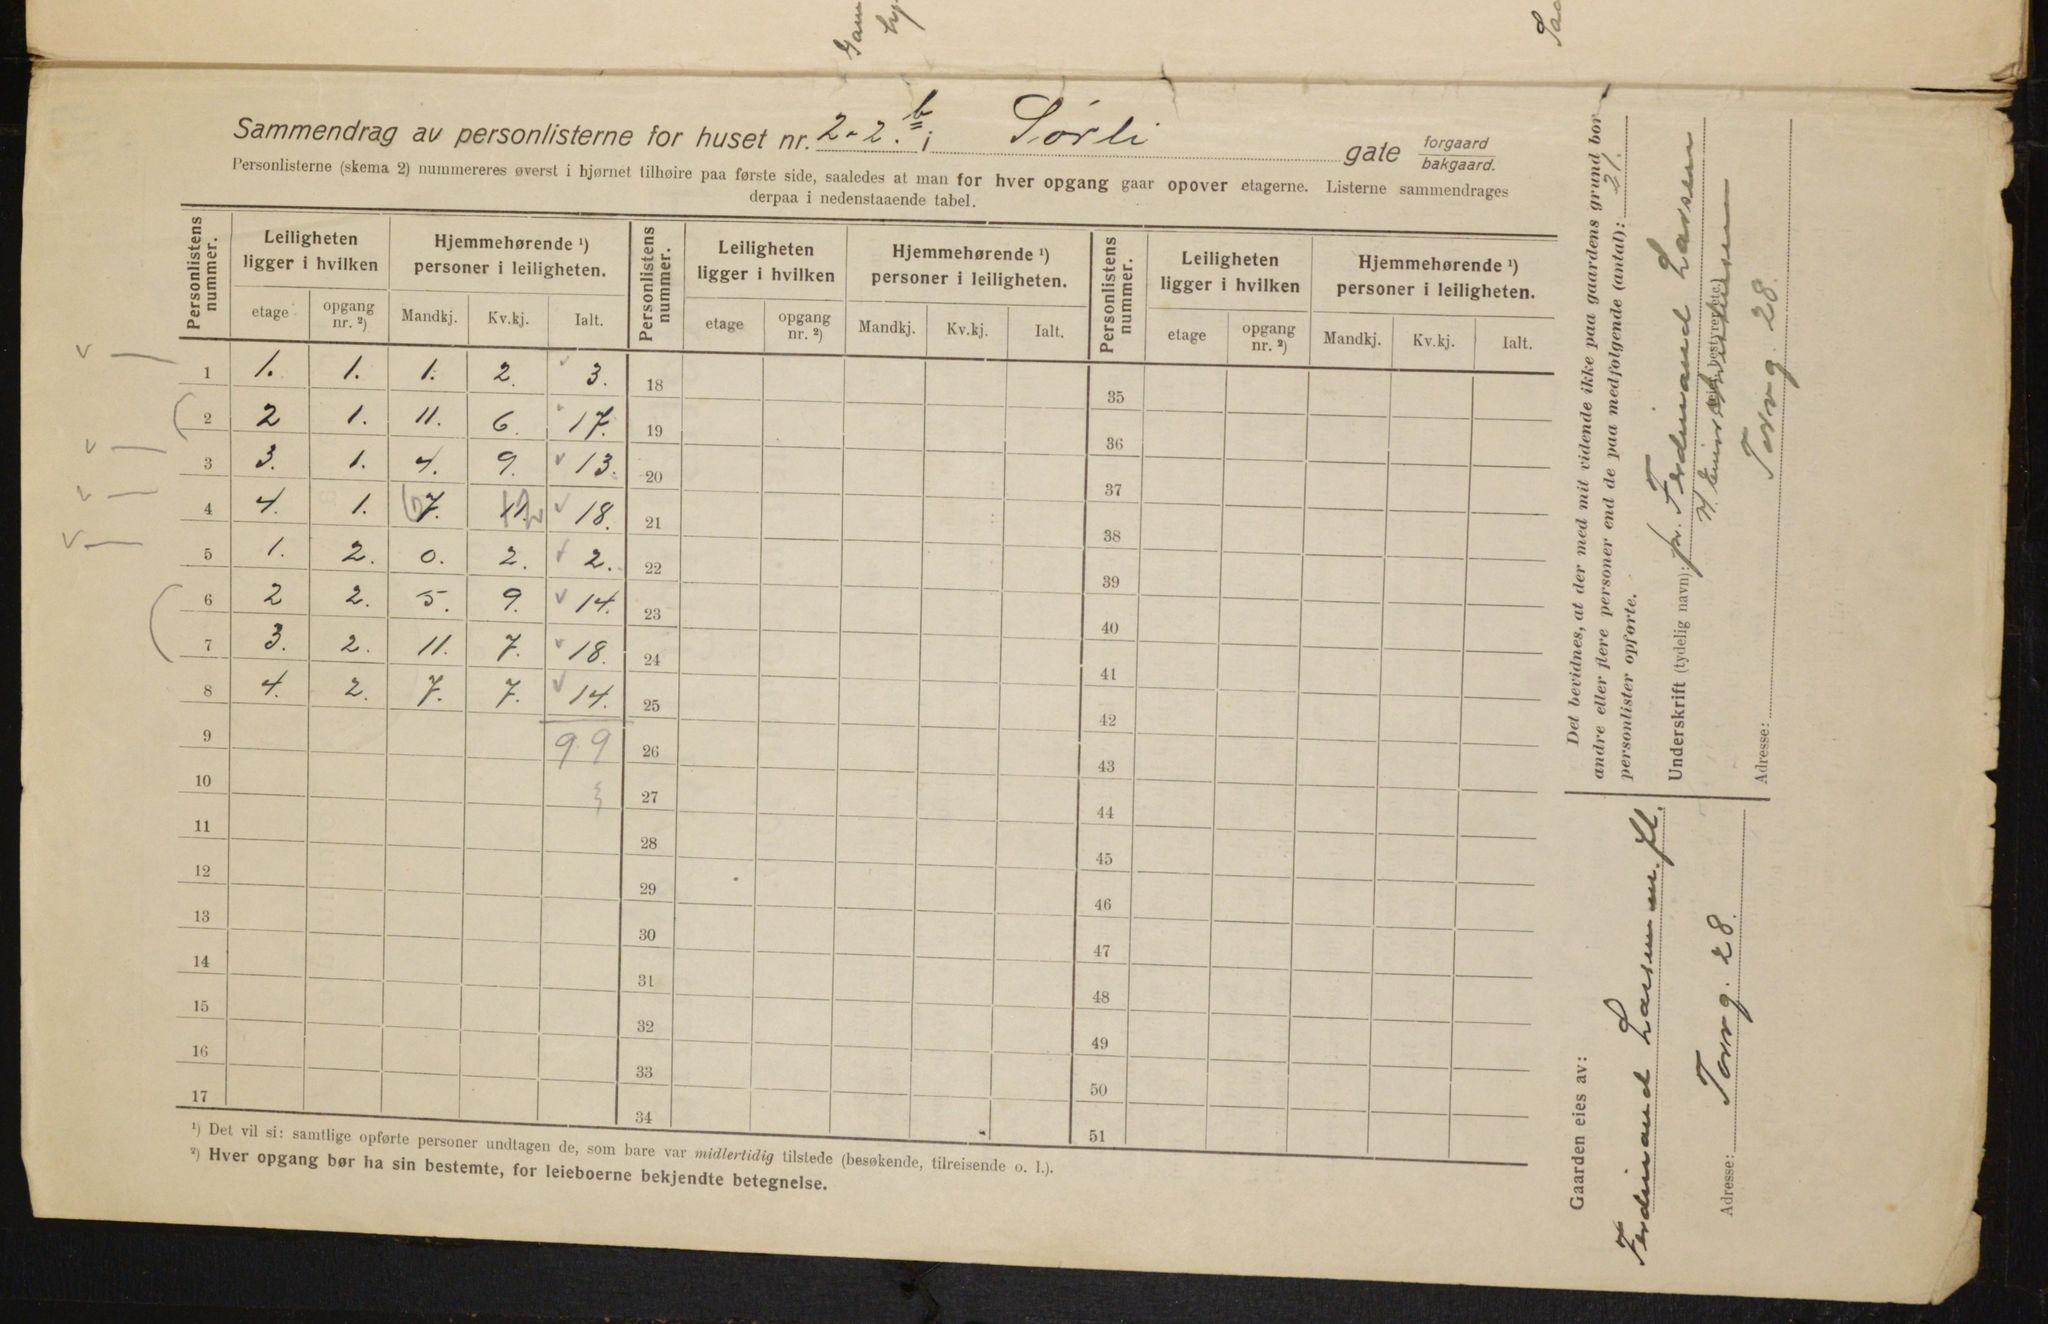 Sammendrag av personlisterne for huset nr. 2-2.b i Sørli gate forgaard bakgaard.
Personlisterne (skema 2) nummereres øverst i hjørnet tilhøire paa første side, saaledes at man for hver opgang gaar opover etagerne. Listerne sammendrages
derpaa i nedenstaaende tabel.
Personlistens nummer. Leiligheten ligger i hvilken Hjemmehørende ¹) personer i leiligheten. Personlistens nummer. Leiligheten ligger i hvilken Hjemmehørende ¹) personer i leiligheten. Personlistens nummer. Leiligheten ligger i hvilken Hjemmehørende ¹) personer i leiligheten.
etage opgang nr. ²) Mandkj. Kv.kj. Ialt. etage opgang nr. ²) Mandkj. Kv.kj. Ialt. etage opgang nr. ²) Mandkj. Kv.kj. Ialt.
1 1. 1. 1. 2. 3. 18 35
2 2 1. 11. 6. 17. 19 36
3 3. 1. 4. 9. 13. 20 37
4 4. 1. 6 7. 11. 12 18. 21 38
5 1. 2. 0. 2. 2. 22 39
6 2 2. 5. 9. 14. 23 40
7 3. 2. 11. 7. 18. 24 41
8 4. 2. 7. 7. 14. 25 42
9 99 26 43
10 27 44
11 28 45
12 29 46
13 30 47
14 31 48
15 32 49
16 33 50
17 34 51
¹) Det vil si: samtlige opførte personer undtagen de, som bare var midlertidig tilstede (besøkende, tilreisende o. l.).
²) Hver opgang bør ha sin bestemte, for leieboerne bekjendte betegnelse.
Det bevidnes, at der med mit vidende ikke paa gaardens grund bor
andre eller flere personer end de paa medfølgende (antal): 21.
personlister opførte.
Underskrift (tydelig navn): pr. Ferdinand Larsen
Adresse: Torvg. 28.
Gaarden eies av:
Ferdinand Larsen
Adresse: Torvg. 28.